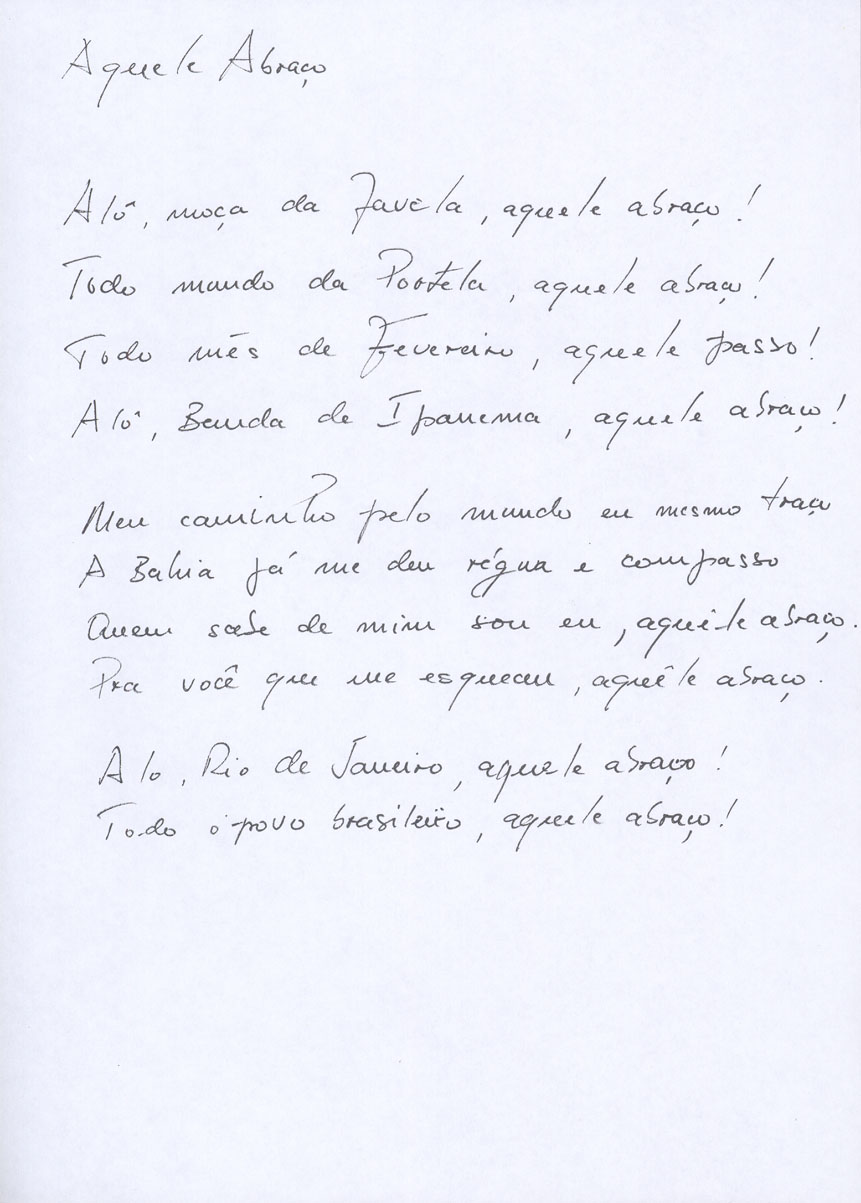 Aquele Abraço
Alô, moça da Favela, aquele abraço!
Todo mundo da Portela, aquele abraço!
Todo mês de Fevereiro, aquele passo!
Alô, Banda de Ipanema, aquele abraço!
Meu caminho pelo mundo eu mesmo traço
A Bahia já me deu régua e compasso
Quem sabe de mim sou eu, aquêle abraço.
Pra você que me esqueceu, aquêle abraço.
Alo, Rio de Janeiro, aquele abraço!
Todo o povo brasileiro, aquele abraço!